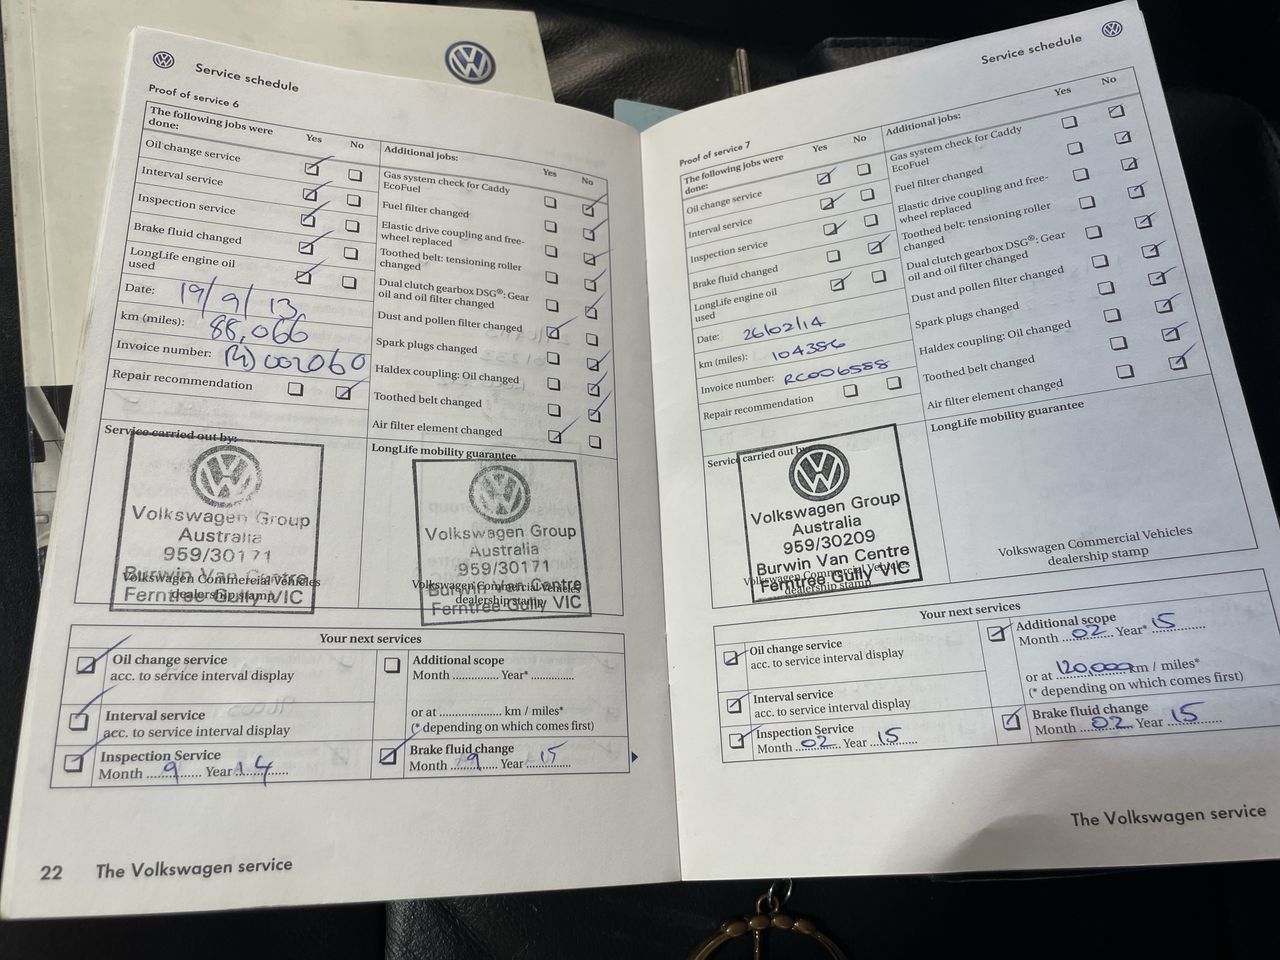 Service schedule
Proof of service 6
The following jobs were done:
Yes No
Oil change service
Interval service
Inspection service
Brake fluid changed
LongLife engine oil used
Date: 19/9/13
km (miles): 88,066
Invoice number: 002060
Repair recommendation
Additional jobs:
Yes No
Gas system check for Caddy EcoFuel
Fuel filter changed
Elastic drive coupling and free-wheel replaced
Toothed belt: tensioning roller changed
Dual clutch gearbox DSG®: Gear oil and oil filter changed
Dust and pollen filter changed
Spark plugs changed
Haldex coupling: Oil changed
Toothed belt changed
Air filter element changed
Service carried out by:
Volkswagen Group
Australia
959/30171
Burwin Van Centre
Ferntree Gully VIC
Volkswagen Commercial Vehicles
dealership stamp
LongLife mobility guarantee
Volkswagen Group
Australia
959/30171
Burwin Van Centre
Ferntree Gully VIC
Volkswagen Commercial Vehicles
dealership stamp
Your next services
Oil change service
acc. to service interval display
Interval service
acc. to service interval display
Inspection Service
Month 9 Year 14
Additional scope
Month ............ Year* ............
or at .................... km / miles*
(* depending on which comes first)
Brake fluid change
Month 9 Year 15
22 The Volkswagen service
Service schedule
Proof of service 7
The following jobs were done:
Yes No
Oil change service
Interval service
Inspection service
Brake fluid changed
LongLife engine oil used
Date: 26/02/14
km (miles): 104386
Invoice number: RC006588
Repair recommendation
Additional jobs:
Yes No
Gas system check for Caddy EcoFuel
Fuel filter changed
Elastic drive coupling and free-wheel replaced
Toothed belt: tensioning roller changed
Dual clutch gearbox DSG®: Gear oil and oil filter changed
Dust and pollen filter changed
Spark plugs changed
Haldex coupling: Oil changed
Toothed belt changed
Air filter element changed
Service carried out by
Volkswagen Group
Australia
959/30209
Burwin Van Centre
Ferntree Gully VIC
Volkswagen Commercial Vehicles
dealership stamp
LongLife mobility guarantee
Volkswagen Commercial Vehicles
dealership stamp
Your next services
Oil change service
acc. to service interval display
Interval service
acc. to service interval display
Inspection Service
Month 02 Year 15
Additional scope
Month 02 Year* 15
or at 120,000 km / miles*
(* depending on which comes first)
Brake fluid change
Month 02 Year 15
The Volkswagen service